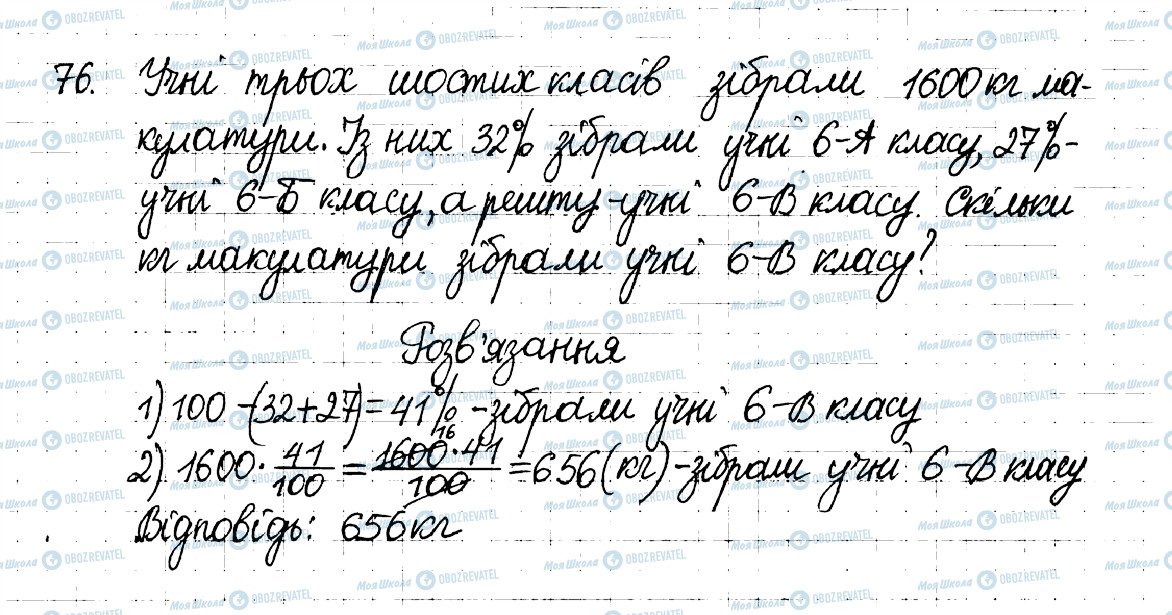 76. Учні трьох шостих класів зібрали 1600 кг ма-
кулатури. Із них 32% зібрали учні 6-А класу, 27% -
учні 6-Б класу, а решту - учні 6-В класу. Скільки
кг макулатури зібрали учні 6-В класу?
Розв'язання
1) 100 - (32+27) = 41% - зібрали учні 6-В класу
2) 1600 · 41/100 = 1600·41/100 = 656 (кг) - зібрали учні 6-В класу
16
Відповідь: 656 кг
Моя Школа OBOZREVATEL